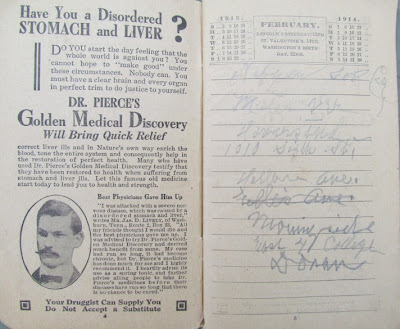 Have You a Disordered
STOMACH and LIVER ?
DO YOU start the day feeling that the
whole world is against you? You
cannot hope to "make good" under
these circumstances. Nobody can. You
must have a clear brain and every organ
in perfect trim to do justice to yourself.
DR. PIERCE'S
Golden Medical Discovery
Will Bring Quick Relief
correct liver ills and in Nature's own way enrich the
blood, tone the entire system and consequently help in
the restoration of perfect health. Many who have
used Dr. Pierce's Golden Medical Discovery testify that
they have been restored to health when suffering from
stomach and liver ills. Let this famous old medicine
start today to lead you to health and strength.
Best Physicians Gave Him Up
"I was attacked with a severe nervous
disease, which was caused by a
disordered stomach and liver,"
writes Mr. Jas. D. Lively, of Washburn,
Tenn., Route 2, Box
my friends thought I would die and
the best physicians gave me up. I
was advised to try Dr. Pierce's Golden
Medical Discovery and derived
much benefit from same. My case
had run so long, it had become
chronic, but Dr. Pierce's medicine
has done much for me and I highly
recommend it. I heartily advise its
use as a spring tonic, and further
advise ailing people to take Dr.
Pierce's medicines before their
diseases have run so long that there
is no chance to be cured."
Your Druggist Can Supply You
Do Not Accept a Substitute
4
FEBRUARY.
1914
LINCOLN'S BIRTHDAY, 12TH.
ST. VALENTINE'S, 14TH.
WASHINGTON'S BIRTHDAY,
22ND.
1919 Sixth St.
Ave.
Ellis Ave.
Mound
East 4 College
Doran
5